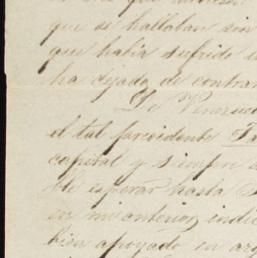 que se hallaban sin
que habia sufrido
ha dejado de contra
De Venezue
el tal presidente
capital y siempre
ble esperar hasta
en mi anterior, indi
bien apoyado en